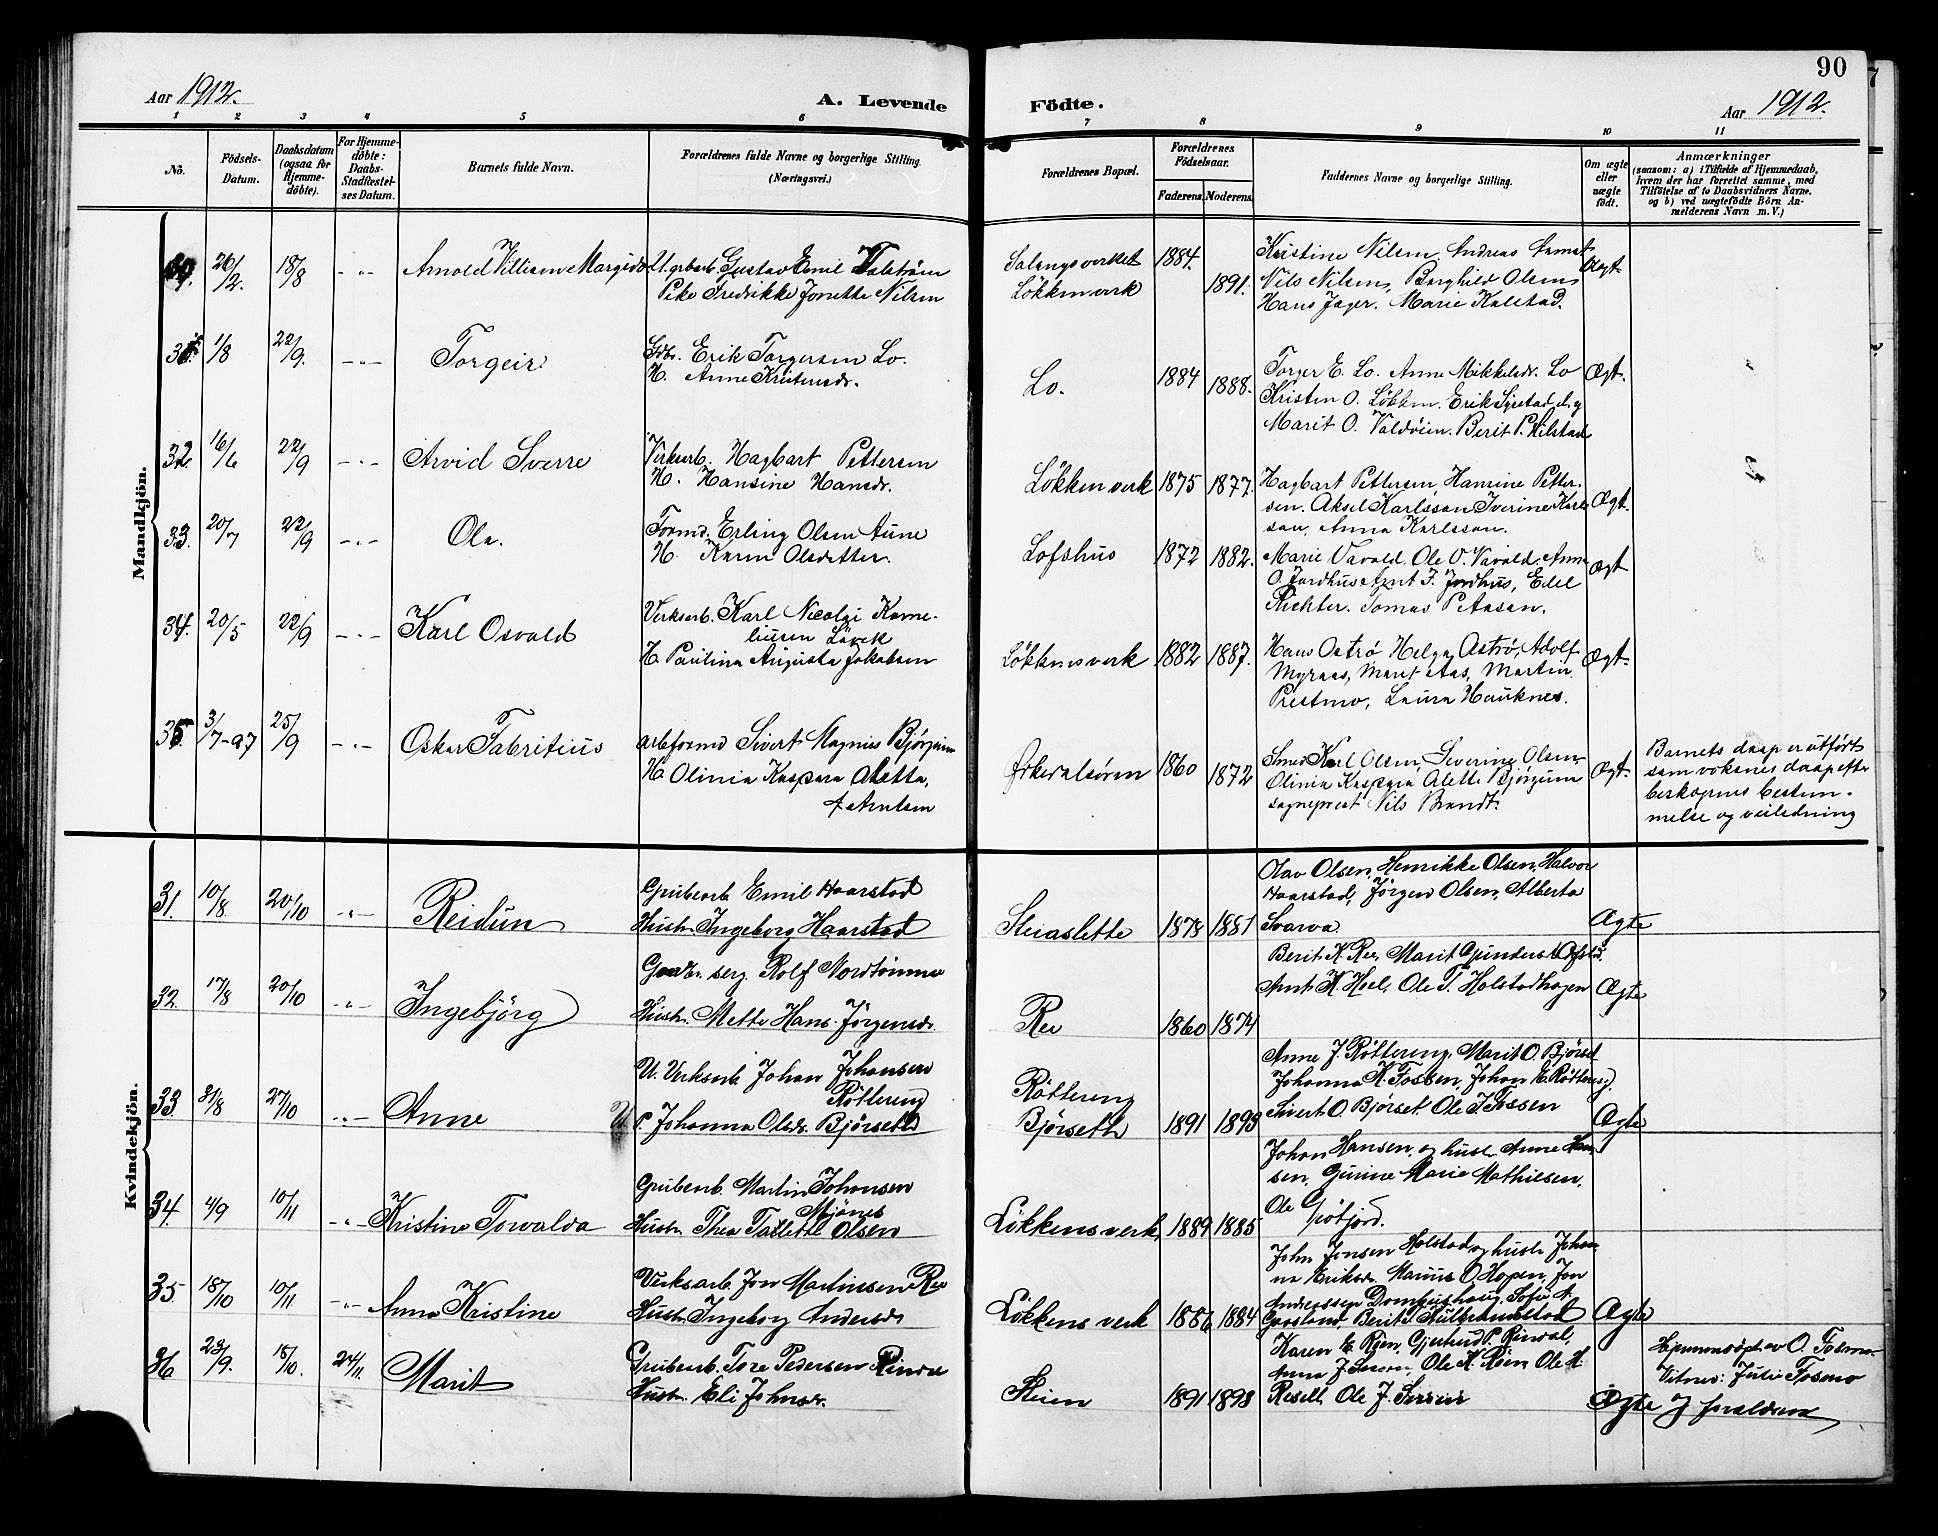 90
Aar 1912.
A. Levende
Födte.
Aar 1912.
1 2 3 4 5 6 7 8 9 10 11
No.
Födsels-
Datum.
Daabsdatum
(ogsaa for
Hjemme-
döbte).
For Hjemme-
döbte:
Daabs-
Stadfæstel-
ses Datum.
Barnets fulde Navn.
Forældrenes fulde Navne og borgerlige Stilling.
(Næringsvei.)
Forældrenes Bopæl.
Forældrenes
Födselsaar.
Faderens.
Moderens.
Faddernes Navne og borgerlige Stilling.
Om ægte
eller
uægte
födt.
Anmærkninger
(saasom: a) i Tilfælde af Hjemmedaab,
hvem der har forrettet samme, med
Tilföielse af to Daabsvidners Navne,
og b) ved uægtefödte Börn An-
melderens Navn m. V.)
Mandkjön.
26/2. 18/8 - " - Arnold Villiam Margido
Gustav Emil
Fredrikke Jonette Nilsen
Salangsverket
Løkkenverk
1884. 1891.
Kristine Nilsen, Andreas
Nils Nilsen, Borghild Olsen
Hans Jager. Marie Kalstad.
1/8 22/9. - " - Torgeir
Gdbr. Erik Torgersen Lo.
H. Anne Kristensdr.
Lo.
1884 1888.
Torger E. Lo. Anne Mikkelsdr. Lo
Kristen O. Løkken. Erik Syrstad d.y
Marit O. Valdøien. Berit P. Hilstad
Ægt.
32. 16/6 22/9 - " - Arvid Sverre
Verksarb. Hagbart Pettersen
H. Hansine Hansdr.
Løkkenverk 1875 1877.
Hagbart Pettersen, Hansine Petter-
sen. Aksel Karlsson Iverine Karls
son, Anna Karlsson.
Ægt.
33. 20/7 22/9 - " - Ola.
Formd. Erling Olsen Aune
H. Karen Olsdatter.
Lofshus 1872 1882.
Marie Vavold. Ole O. Vavold. Anne
O. Jordhus Arnt J. Jordhus, Edel
Richter. Tomas Petersen.
Ægt
34. 20/5 22/9 - " - Karl Osvald
Verksarb. Karl Nicolai Korne-
liusen Løvek
H. Paulina Augusta Jakobsen
Løkkensverk 1882 1887.
Hans Ostrø Helga Ostrø, Adolf
Myraas, Marit Aas, Martin
Prestmo, Laura Hauknes.
Ægt.
35. 3/7-97 25/9 - " - Oskar Fabritius
Arbformd Sivert Magnus Bjørgum
H. Olinia Kaspara Aletta,
f. Arntsen
Ørkedalsøren 1860 1872
Smed Karl Olsen, Severine Olsen
Olinia Kaspara Alette Bjørgum
sogneprest Nils Brandt.
Ægt.
Barnets daap er utført
som voksnes daap efter
biskopens bestem-
melse og veiledning
Kvindekjön.
31. 10/8 20/10 - " - Reidun
Grubearb Emil Haarstad
Hustr. Ingeborg Haarstad
Steiaslette 1878 1881
Olav Olsen, Henrikke Olsen, Halvor
Haarstad, Jørgen Olsen, Alberta
Svarva.
Ægte
32. 17/8 20/10 " - Ingebjörg
Gaardbr. serg. Rolf Nordtømme
Hustr. Mette Hans Jørgensdr
Ree 1860 1874
Berit K. Ree, Marit Gundersd. Ofstd.
Arnt K Heel, Ole T. Holstadhagen
Ægte
33. 31/8 27/10 " - Anne
U. Verksarb. Johan Johansen
Røttereng
P. Johanna Olsdr. Bjørseth
Røttereng
Bjørseth 1891 1893
Anne J. Røttereng, Marit O. Bjørset
Johanna K. Fossen, Johan E. Røttereng,
Sivert O Bjørset Ole J Fossen
Ægte
34. 4/9 10/11 - " - Kristine Torvalda
Grubearb. Martin Johansen
Mjønes
Hustr. Thea Tallette Olsen
Løkkensverk 1889 1885
Johan Hansen og hustr. Anne Han
sen, Gurine Marie Mathilsen,
Ole Grøtjord.
35. 18/10 10/11. - " - Anna Kristine
Verksarb. Jon Martinssen Ree
Hustr. Ingeborg Andersdr
Løkkensverk 1886 1884
John Jonsen Holstad og hustr Johan
na Eriksdr. Marius O. Hopen, Jon
Ægte
36 23/9. 18/10. 24/11. Marit
Grubearb. Tore Pedersen Rindal
Hustr. Eli Johnsdr.
Steien 1891 1893
Karen E. Røen, Gjertrud P. Rindal,
Ole K. Røen Ole K.
Resell, Ole J.
Ægte
Hjemmedøpt av O. Fosmo
Vitner: Julie Fosmo
og foreldrene